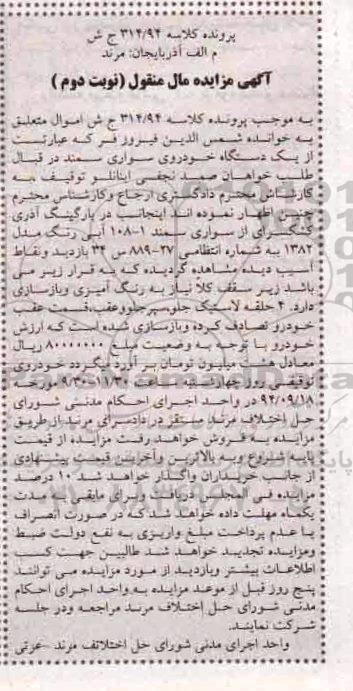 پرونده کلاسه ۳۱۴/۹۴ ج ش
م الف آذربایجان: مرند
آگهی مزایده مال منقول (نوبت دوم)
به موجب پرونده کلاسه ۳۱۴/۹۴ ج ش اموال متعلق
به خوانده شمس الدین فیروز فر که عبارتست
از یک دستگاه خودروی سواری سمند در قبال
طلب خواهان صمد نجفی اینانلو توقیف به
کارشناس محترم دادگستری ارجاع و کارشناس محترم
چنین اظهار نموده اند اینجانب در پارکینگ آذری
کشکسرای از سواری سمند ۱-۱۰۸ آبی رنگ مدل
۱۳۸۲ به شماره انتظامی ۲۷-۸۸۹ س ۳۴ بازدید و نقاط
آسیب دیده مشاهده گردیده که به قرار زیر می
باشد زیر سقف کلا نیاز به رنگ آمیزی وبازسازی
دارد. ۴ حلقه لاستیک جلو،سپرجلووعقب،قسمت عقب
خودرو تصادف کرده وبازسازی شده است که ارزش
خودرو با توجه به وضعیت مبلغ ۸۰۰۰۰۰۰۰ ریال
معادل هشت میلیون تومان بر آورد میگردد خودروی
توقیفی روز چهارشنبه ساعت ۱۱/۳۰-۹/۳۰ مورخه
۹۴/۰۹/۱۸ در واحد اجرای احکام مدنی شورای
حل اختلاف مرند مستقر در دادسرای مرند از طریق
مزایده به فروش خواهد رفت مزایده از قیمت
پایه شروع وبه بالاترین وآخرین قیمت پیشنهادی
از جانب خریداران واگذار خواهد شد ۱۰ درصد
مزایده فی المجلس دریافت وبرای مابقی به مدت
یکماه مهلت داده خواهد شد که در صورت انصراف
یا عدم پرداخت مبلغ واریزی به نفع دولت ضبط
ومزایده تجدید خواهد شد طالبین جهت کسب
اطلاعات بیشتر وبازدید از مورد مزایده می توانند
پنج روز قبل از موعد مزایده به واحد اجرای احکام
مدنی شورای حل اختلاف مرند مراجعه ودر جلسه
شرکت نمایند.
واحد اجرای مدنی شورای حل اختلاف مرند -عزتی